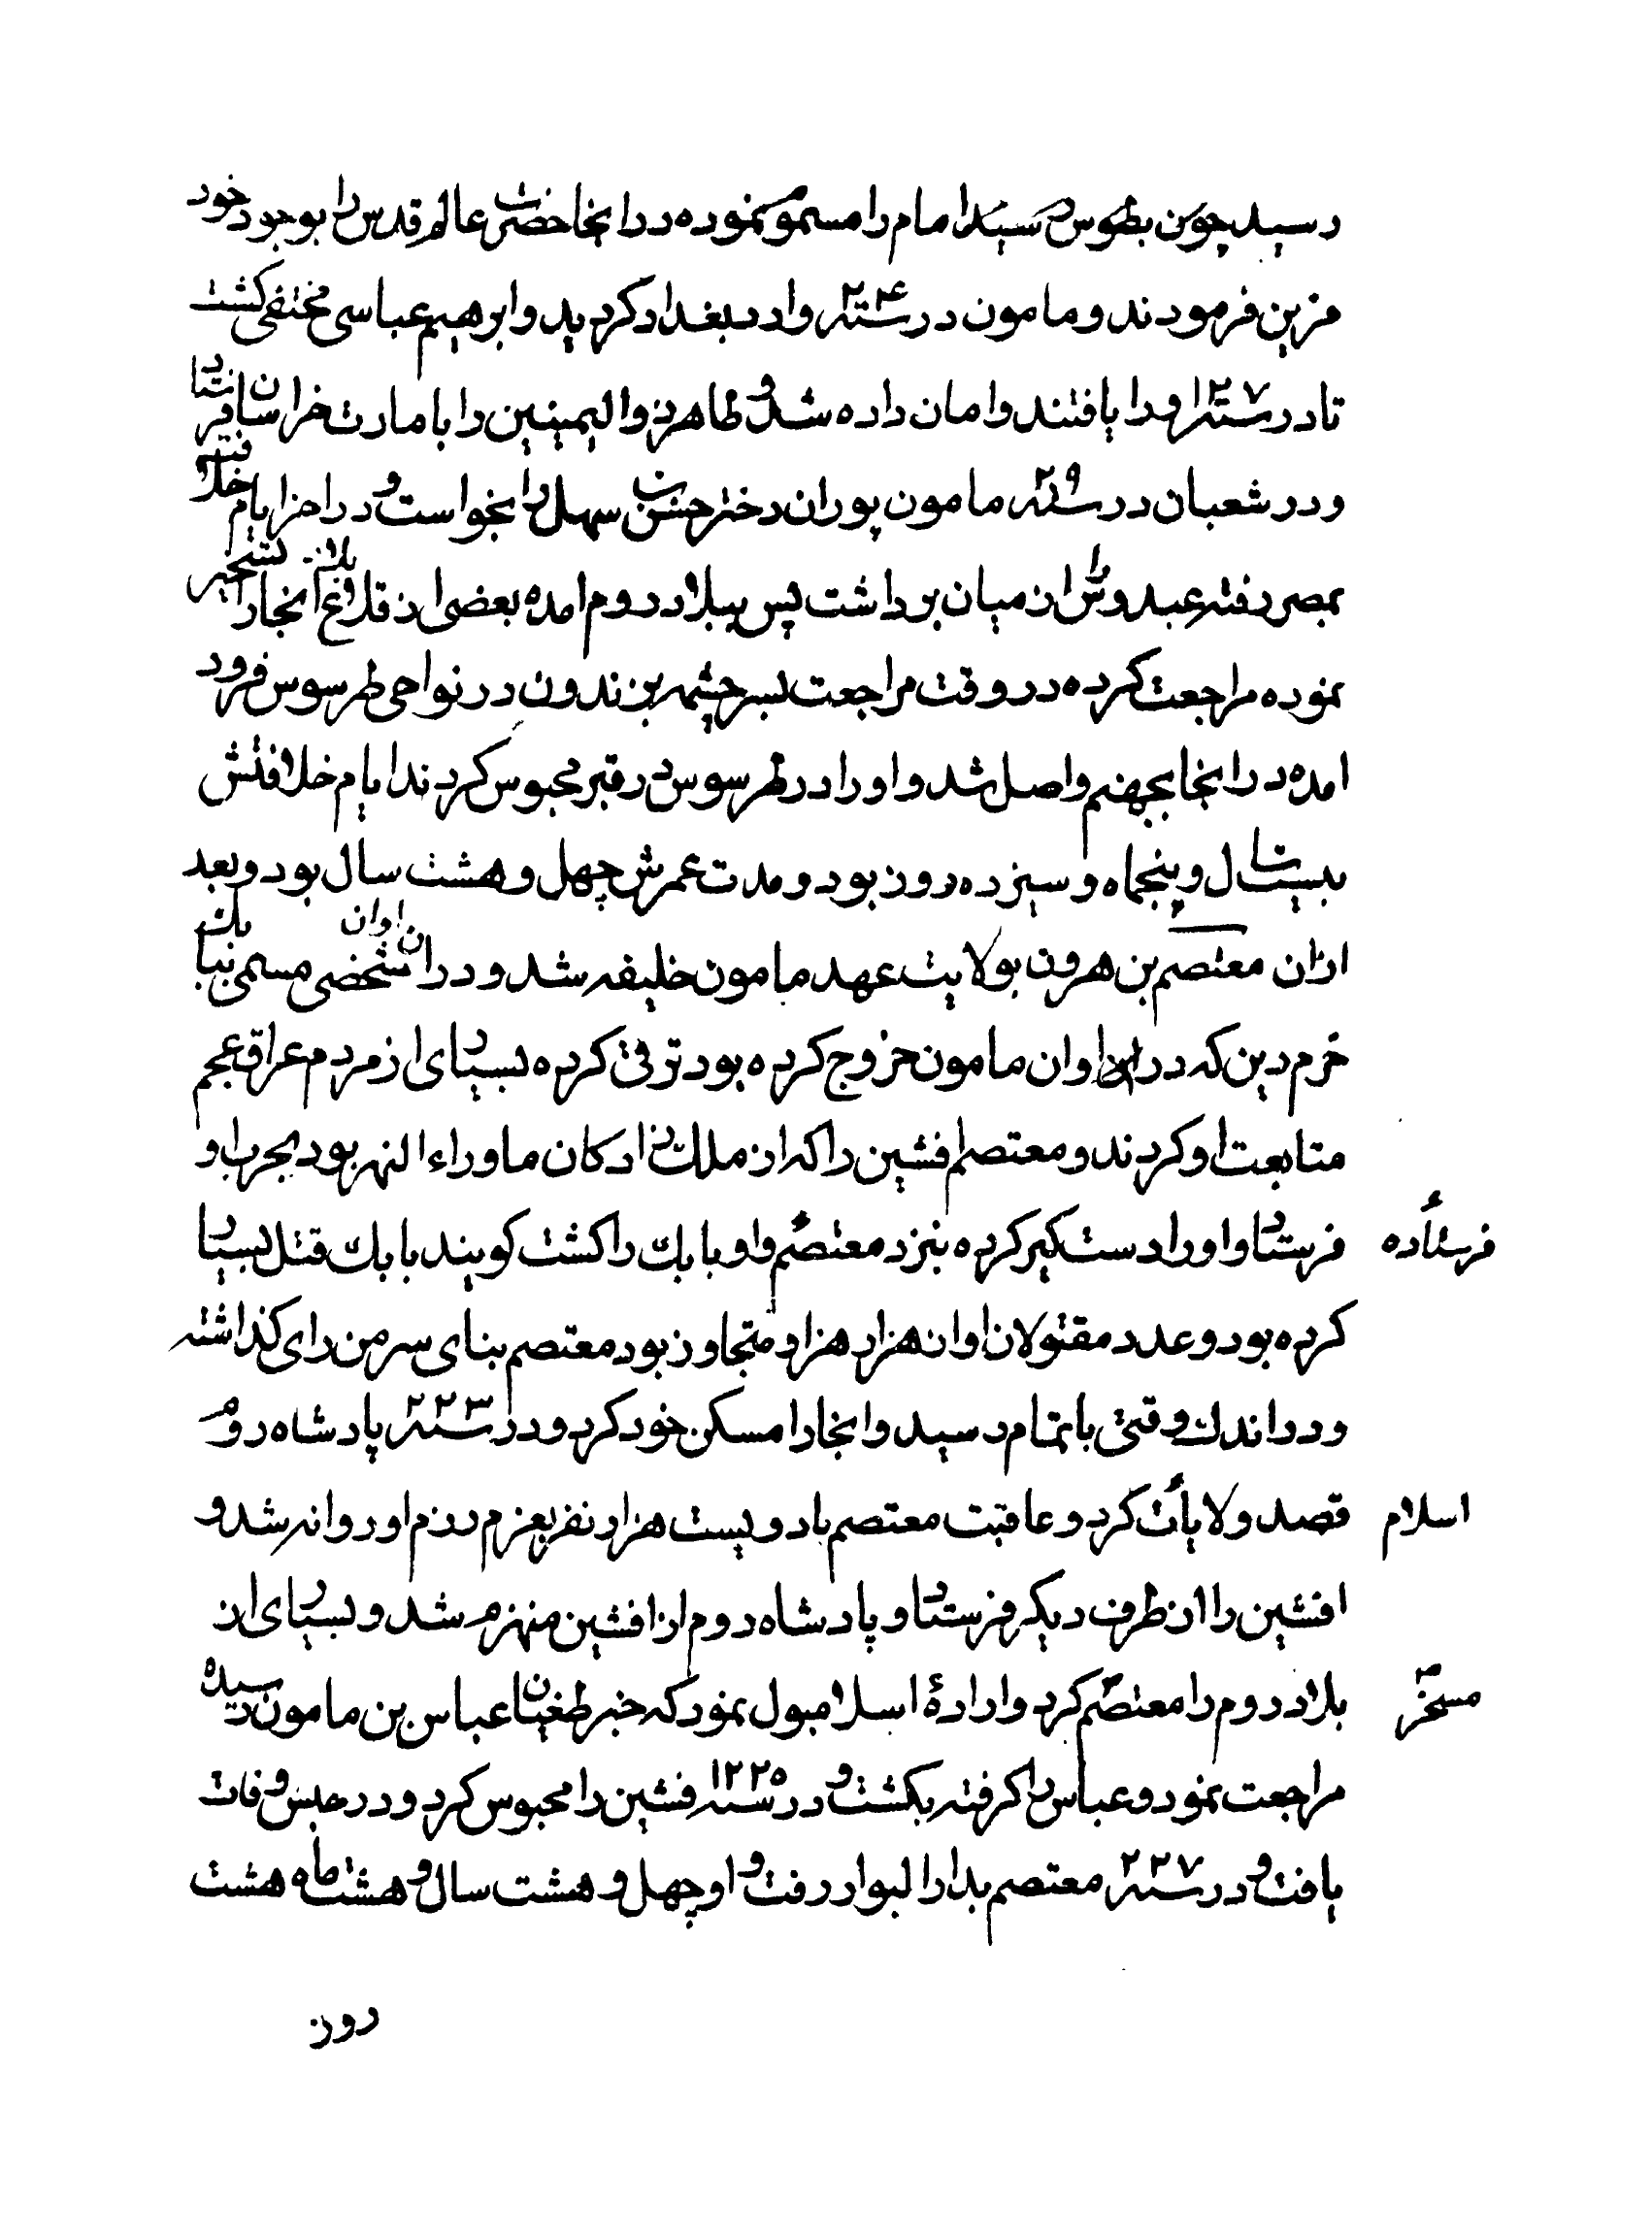 رسید چون بطوس رسید امام را مسموم نموده در انجا حضرت عالم قدس را بوجود خود
مزین فرمودند و مامون در سنه ۲۰۴ وارد بغداد کردید و ابرهیم عباسی مختفی کشت
تا در سنه ۲۰۷ او را یافتند و امان داده شد و طاهر ذو الیمینین را بامارت خراسان فرستاد
و در شعبان در سنه ۲۰۹ مامون پوران دختر حسن بن سهل را بخواست و در اخر ایام خلافتش
بمصر رفته عبدوس را از میان برداشت پس ببلاد روم امده بعضی از قلاع بلاد انجا را تسخیر
نموده مراجعت کرده در وقت مراجعت بسر چشمه بزندون در نواحی طرسوس فرود
امده در انجا بجهنم واصل شد و او را در طرسوس در قبر محبوس کردند ایام خلافتش
بیست سال و پنجماه و سیزده روز بود و مدت عمرش چهل و هشت سال بود و بعد
ازان معتصم بن هرون بولایت عهد مامون خلیفه شد و در ان اوان شخصی مسمی ببابک
خرم دین که در اوان مامون خروج کرده بود ترقی کرده بسیاری از مردم عراق عجم
متابعت او کردند و معتصم افشین را که از ملک زادکان ماوراء النهر بود بحرب او
فرستاد و او را دست کیر کرده بنزد معتصم فرستاده و او بابک را کشت کویند بابک قتل بسیار
کرده بود و عدد مقتولان او از هزار هزار متجاوز بود معتصم بنای سر من رای کذاشته
و در اندک وقتی باتمام رسید و انجا را مسکن خود کرد و در سنه ۲۲۳ پادشاه روم
قصد ولایات اسلام کرد و عاقبت معتصم با دویست هزار نفر بعزم رزم او روانه شد و
افشین را از طرف دیکر فرستاد و پادشاه روم از افشین منهزم شد و بسیاری از
بلاد روم را معتصم مسخر کرد و ارادهٔ اسلامبول نمود که خبر طغیان عباس بن مامون رسیده
مراجعت نمود و عباس را کرفته بکشت و در سنه ۲۲۵ افشین را محبوس کرد و در حبس وفات
یافت و در سنه ۲۲۷ معتصم بدار البوار رفت و او چهل و هشت سال و هشت ماه هشت
روز